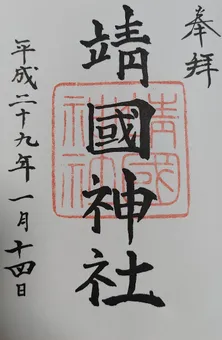 奉拜
靖國神社
靖國
神社
平成二十九年一月十四日